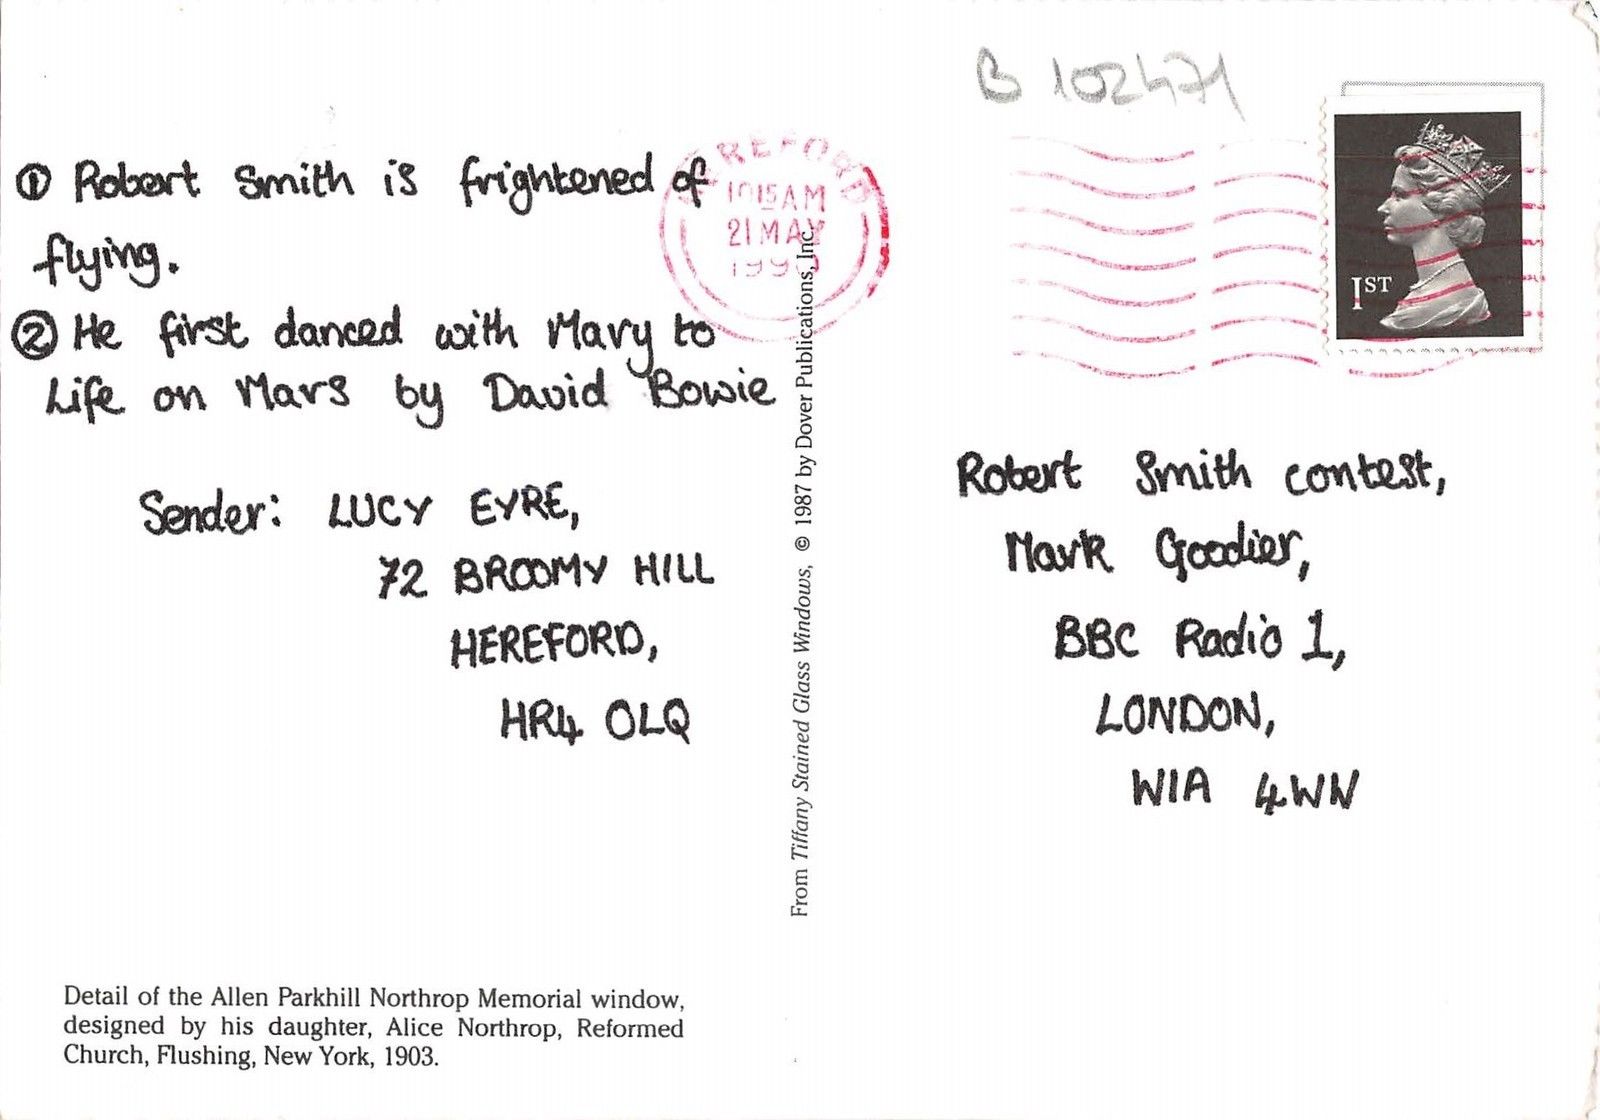 B 102471
HEREFORD
10 15 AM
21 MAY
1ST
① Robert Smith is frightened of
flying.
② He first danced with Mary to
Life on Mars by David Bowie
Sender: LUCY EYRE,
72 BROOMY HILL
HEREFORD,
HR4 OLQ
From Tiffany Stained Glass Windows, © 1987 by Dover Publications, Inc.
Robert Smith contest,
Mark Goodier,
BBC Radio 1,
LONDON,
W1A 4WN
Detail of the Allen Parkhill Northrop Memorial window,
designed by his daughter, Alice Northrop, Reformed
Church, Flushing, New York, 1903.